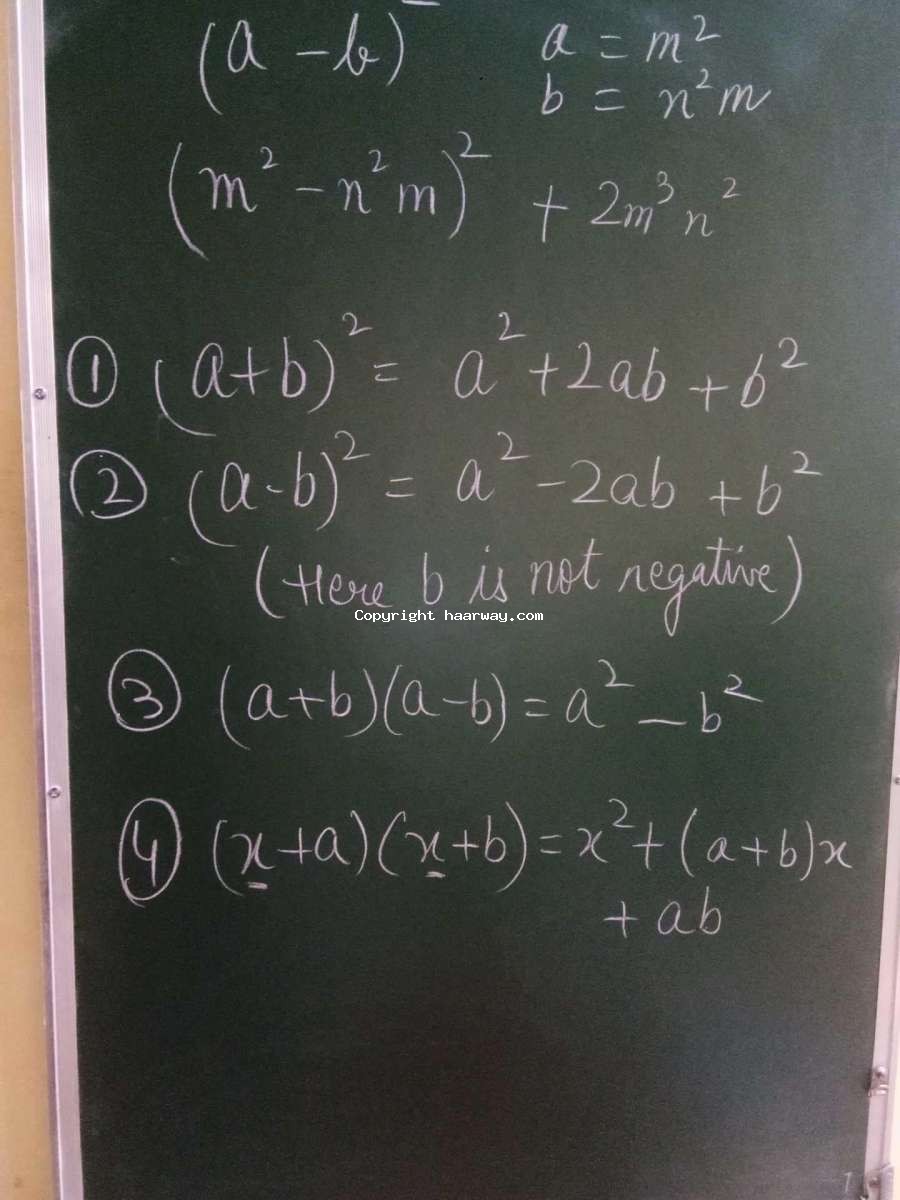 (a - b)² a = m²
b = n²m
(m² - n²m)² + 2m³n²
① (a+b)² = a² + 2ab + b²
② (a-b)² = a² - 2ab + b²
(Here b is not negative)
Copyright haarway.com
③ (a+b)(a-b) = a² - b²
④ (x+a)(x+b) = x² + (a+b)x
+ ab